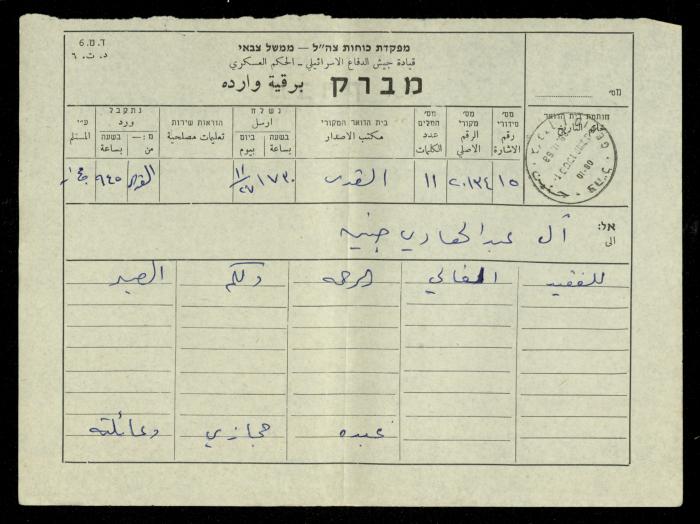 ד.מ.6
د.ت.٦
מפקדת כוחות צה"ל — ממשל צבאי
قيادة جيش الدفاع الاسرائيلي - الحكم العسكري
מברק برقية وارده
מס׳
חותמת בית הדואר
מס׳ סידורי رقم الاشارة
מס׳ מקורי الرقم الاصلي
מס׳ המלים عدد الكلمات
בית הדואר המקורי مكتب الاصدار
נשלח ارسل
בשעה بساعة
ביום بيوم
הוראות שירות تعليمات مصلحية
נתקבל ورد
מ:— من
בשעה بساعة
ע״י المستلم
١٥ ٢٠١٣٤ ١١ القدس ١٧٣٠ ١١/٢٧ القدس ٩٤٥
אל: الى آل عبد الهادي جنين
للفقيد الغالي الرحمه ولكم الصبر
عبده حجازي وعائلته